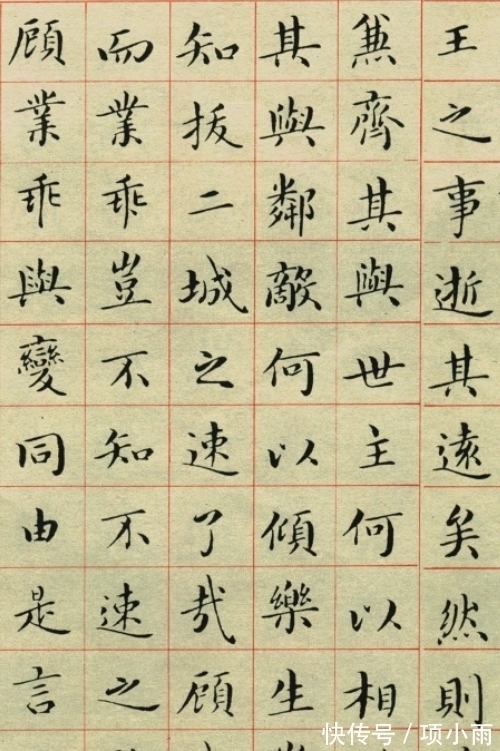 王之事逝其遠矣然則
兼齊其與世主何以相
其與鄰敵何以傾樂生
知拔二城之速了哉顧
而業乖豈不知不速之
顧業乖與變同由是言
快传号 / 项小雨